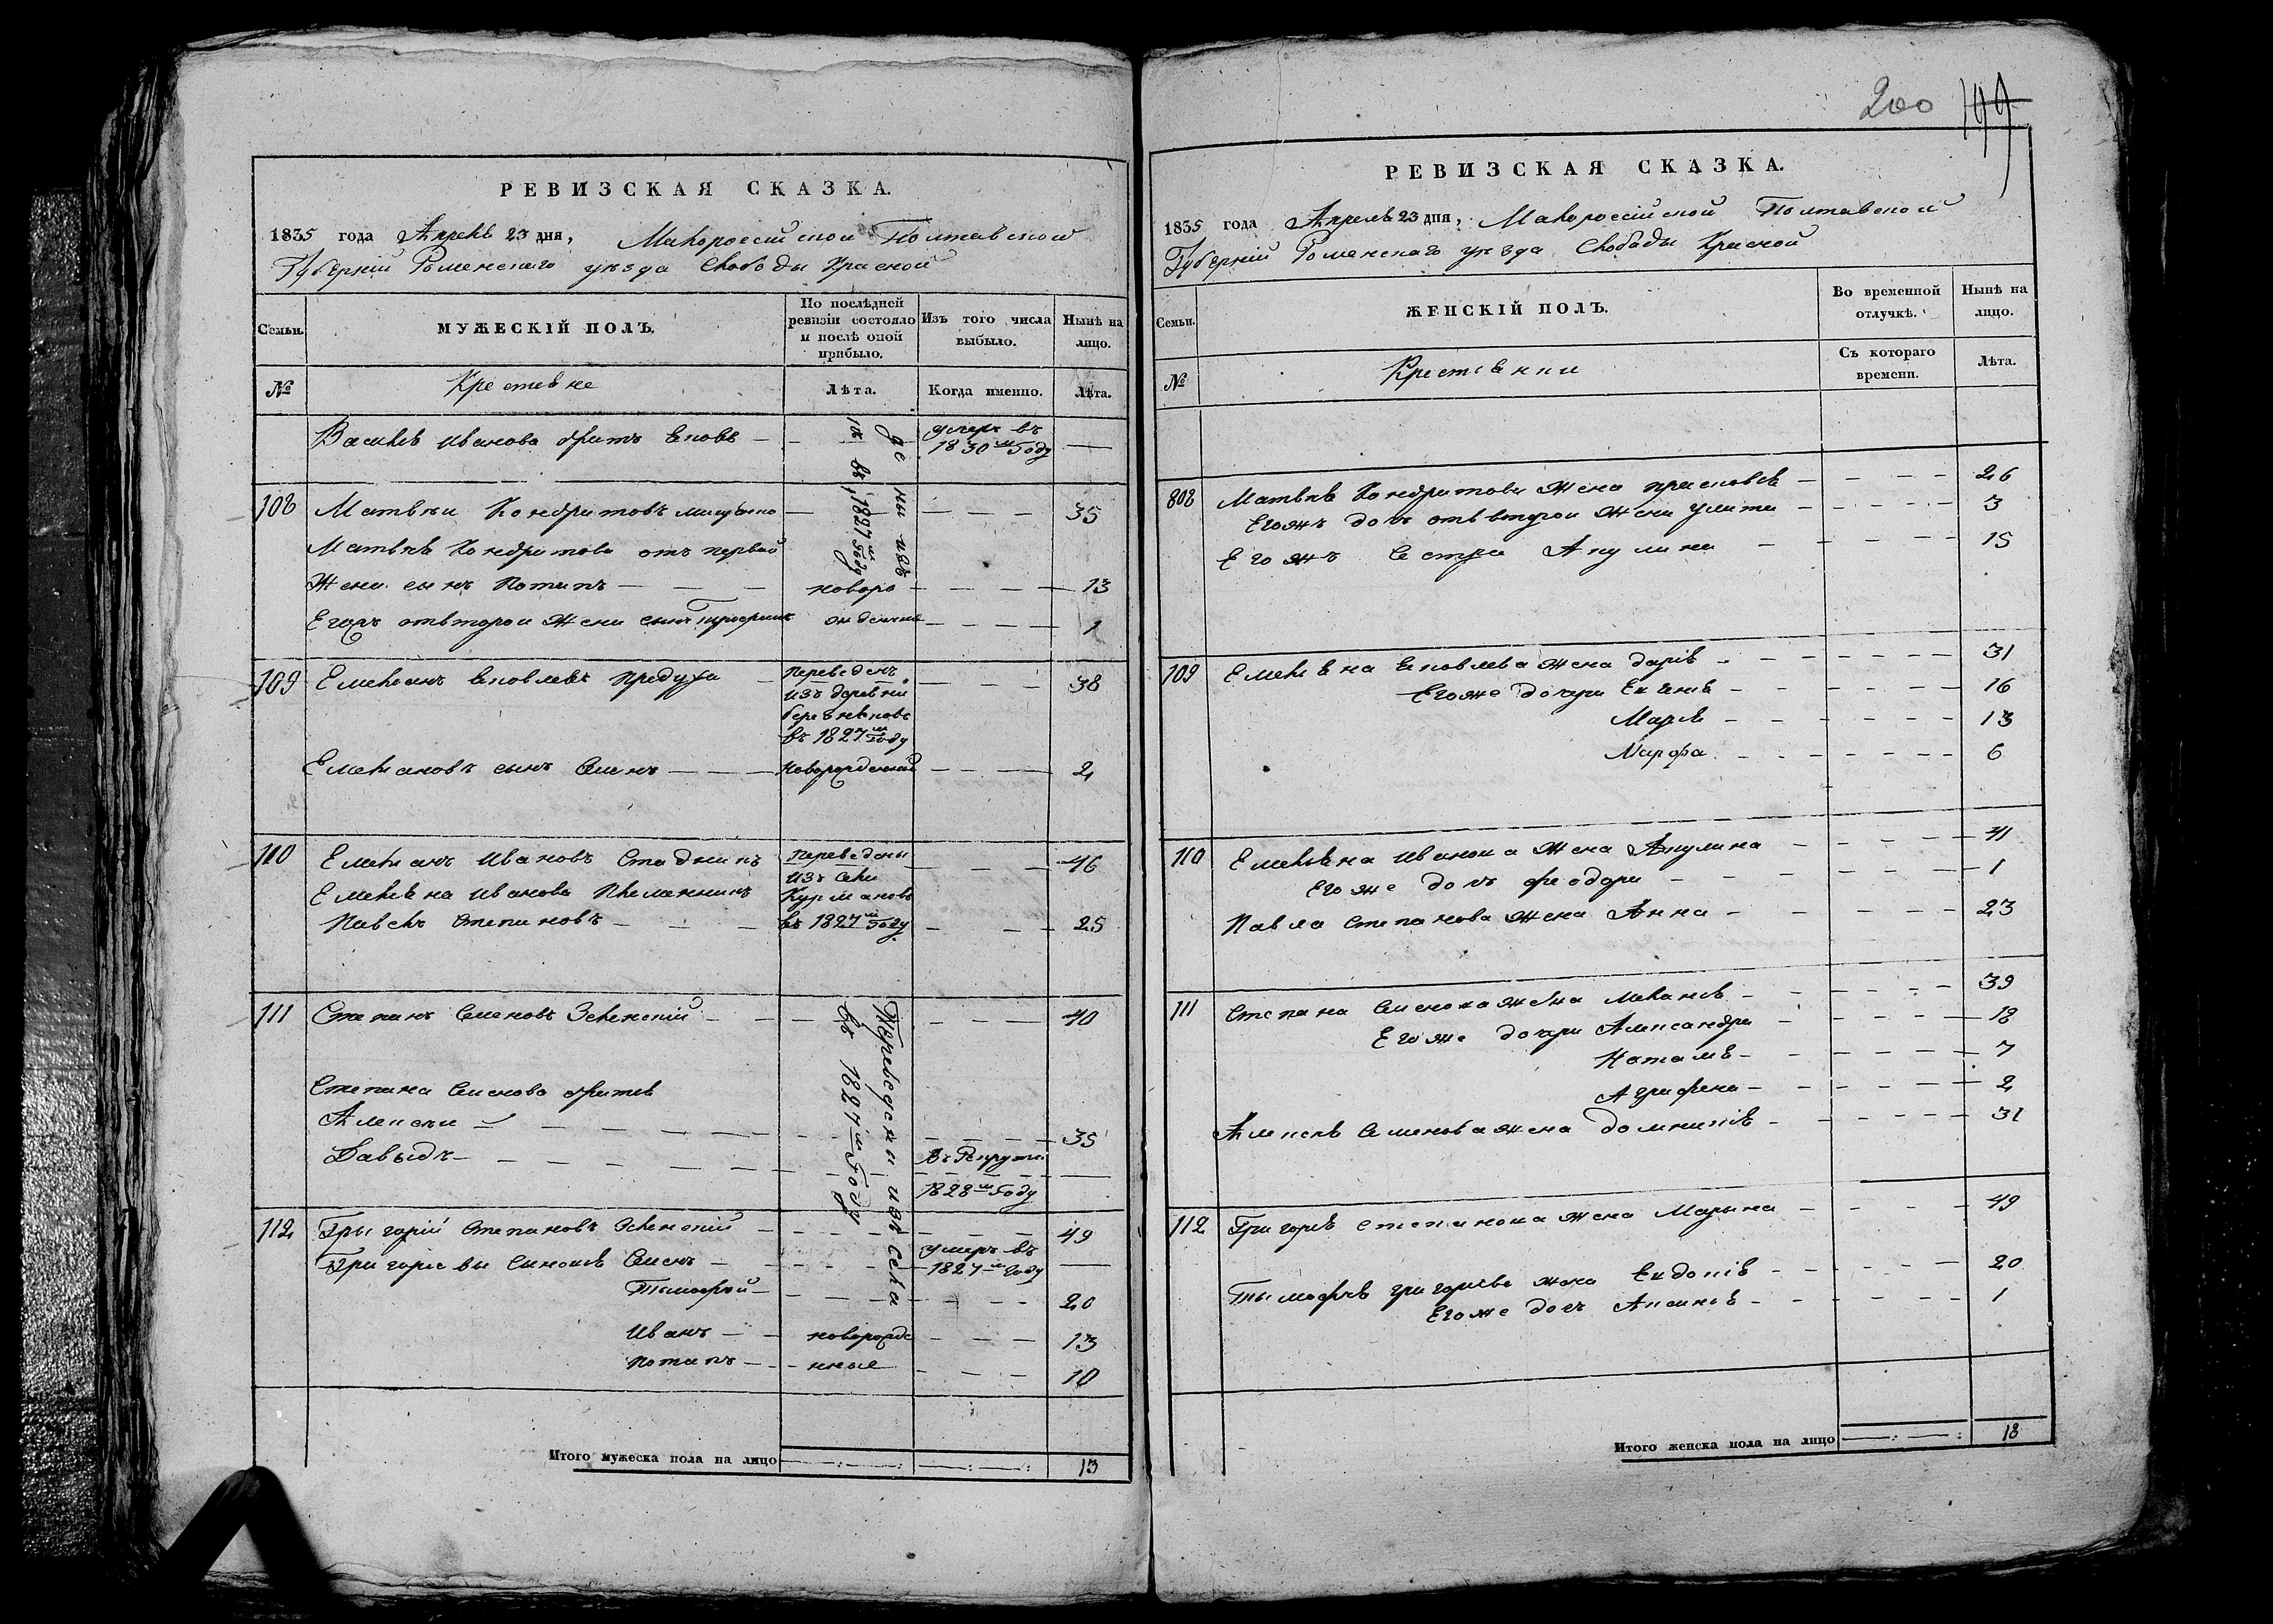 200 199
РЕВИЗСКАЯ СКАЗКА.
1835 года Апреля 23 дня, Малороссійской Полтавской
Губерніи Роменскаго уезда Слободы Красной
Семьи.
МУЖЕСКІЙ ПОЛЪ.
По послѣдней ревизіи состояло и послѣ оной прибыло.
Изъ того числа выбыло.
Нынѣ на лицо.
№
Крестьяне
Лѣта.
Когда именно.
Лѣта.
Василя Иванова братъ Яковъ — умеръ въ 1830 м году —
дены изъ
въ 1827 м году
108 Матвѣй Кондратовъ 35
Матвѣя Кондратова отъ первой
жены сынъ Потапъ — новоро 13
Егожъ отвторой жены сынъ жденные 1
109 Емельянъ Яковлевъ — Переведенъ 38
изъ деревни
въ 1827 м году
Емельяновъ сынъ Семенъ — новорожденный 2
110 Емельянъ Ивановъ Стадникъ Переведены 46
изъ села
Емельяна Иванова племянникъ
Павелъ Степановъ — въ 1827 м году 25
111 Степанъ Семеновъ 40
Переведены изъ села
въ 1827 м году
Степана Семенова братья
Алексей — 35
Давыдъ — въ Рекруты
1828 м году
112 Грыгорій Степановъ 49
Григорьевы сыновья Семенъ — умеръ въ 1827 м году —
Тымофей — 20
Иванъ — новорожде 13
Потапъ — нные 10
Итого мужеска пола на лицо 13
РЕВИЗСКАЯ СКАЗКА.
1835 года Апреля 23 дня, Малороссійской Полтавской
Губерніи Роменскаго уезда Слободы Красной
Семьи.
ЖЕНСКІЙ ПОЛЪ.
Во временной отлучкѣ.
Нынѣ на лицо.
№
Крестьянки
Съ котораго времени.
Лѣта.
108 Матвѣя Кондратова жена 26
Егожъ дочь отвторой жены Улита 3
Егожъ Сестра Акулина 15
109 Емельяна Яковлева жена Дарія 31
Егоже дочери 16
Марія 13
Марфа 6
110 Емельяна Иванова жена Акулина 41
Егоже дочь Феодора 1
Павла Степанова жена Анна 23
111 Степана Семенова жена Меланія 39
Егоже дочери Александра 18
Наталія 7
Агрифена 2
Алексея Семенова жена Домникія 31
112 Григорія Степанова жена Марына 49
Тымофея Григорьева жена Евдокія 20
Егоже дочь 1
Итого женска пола на лицо 18